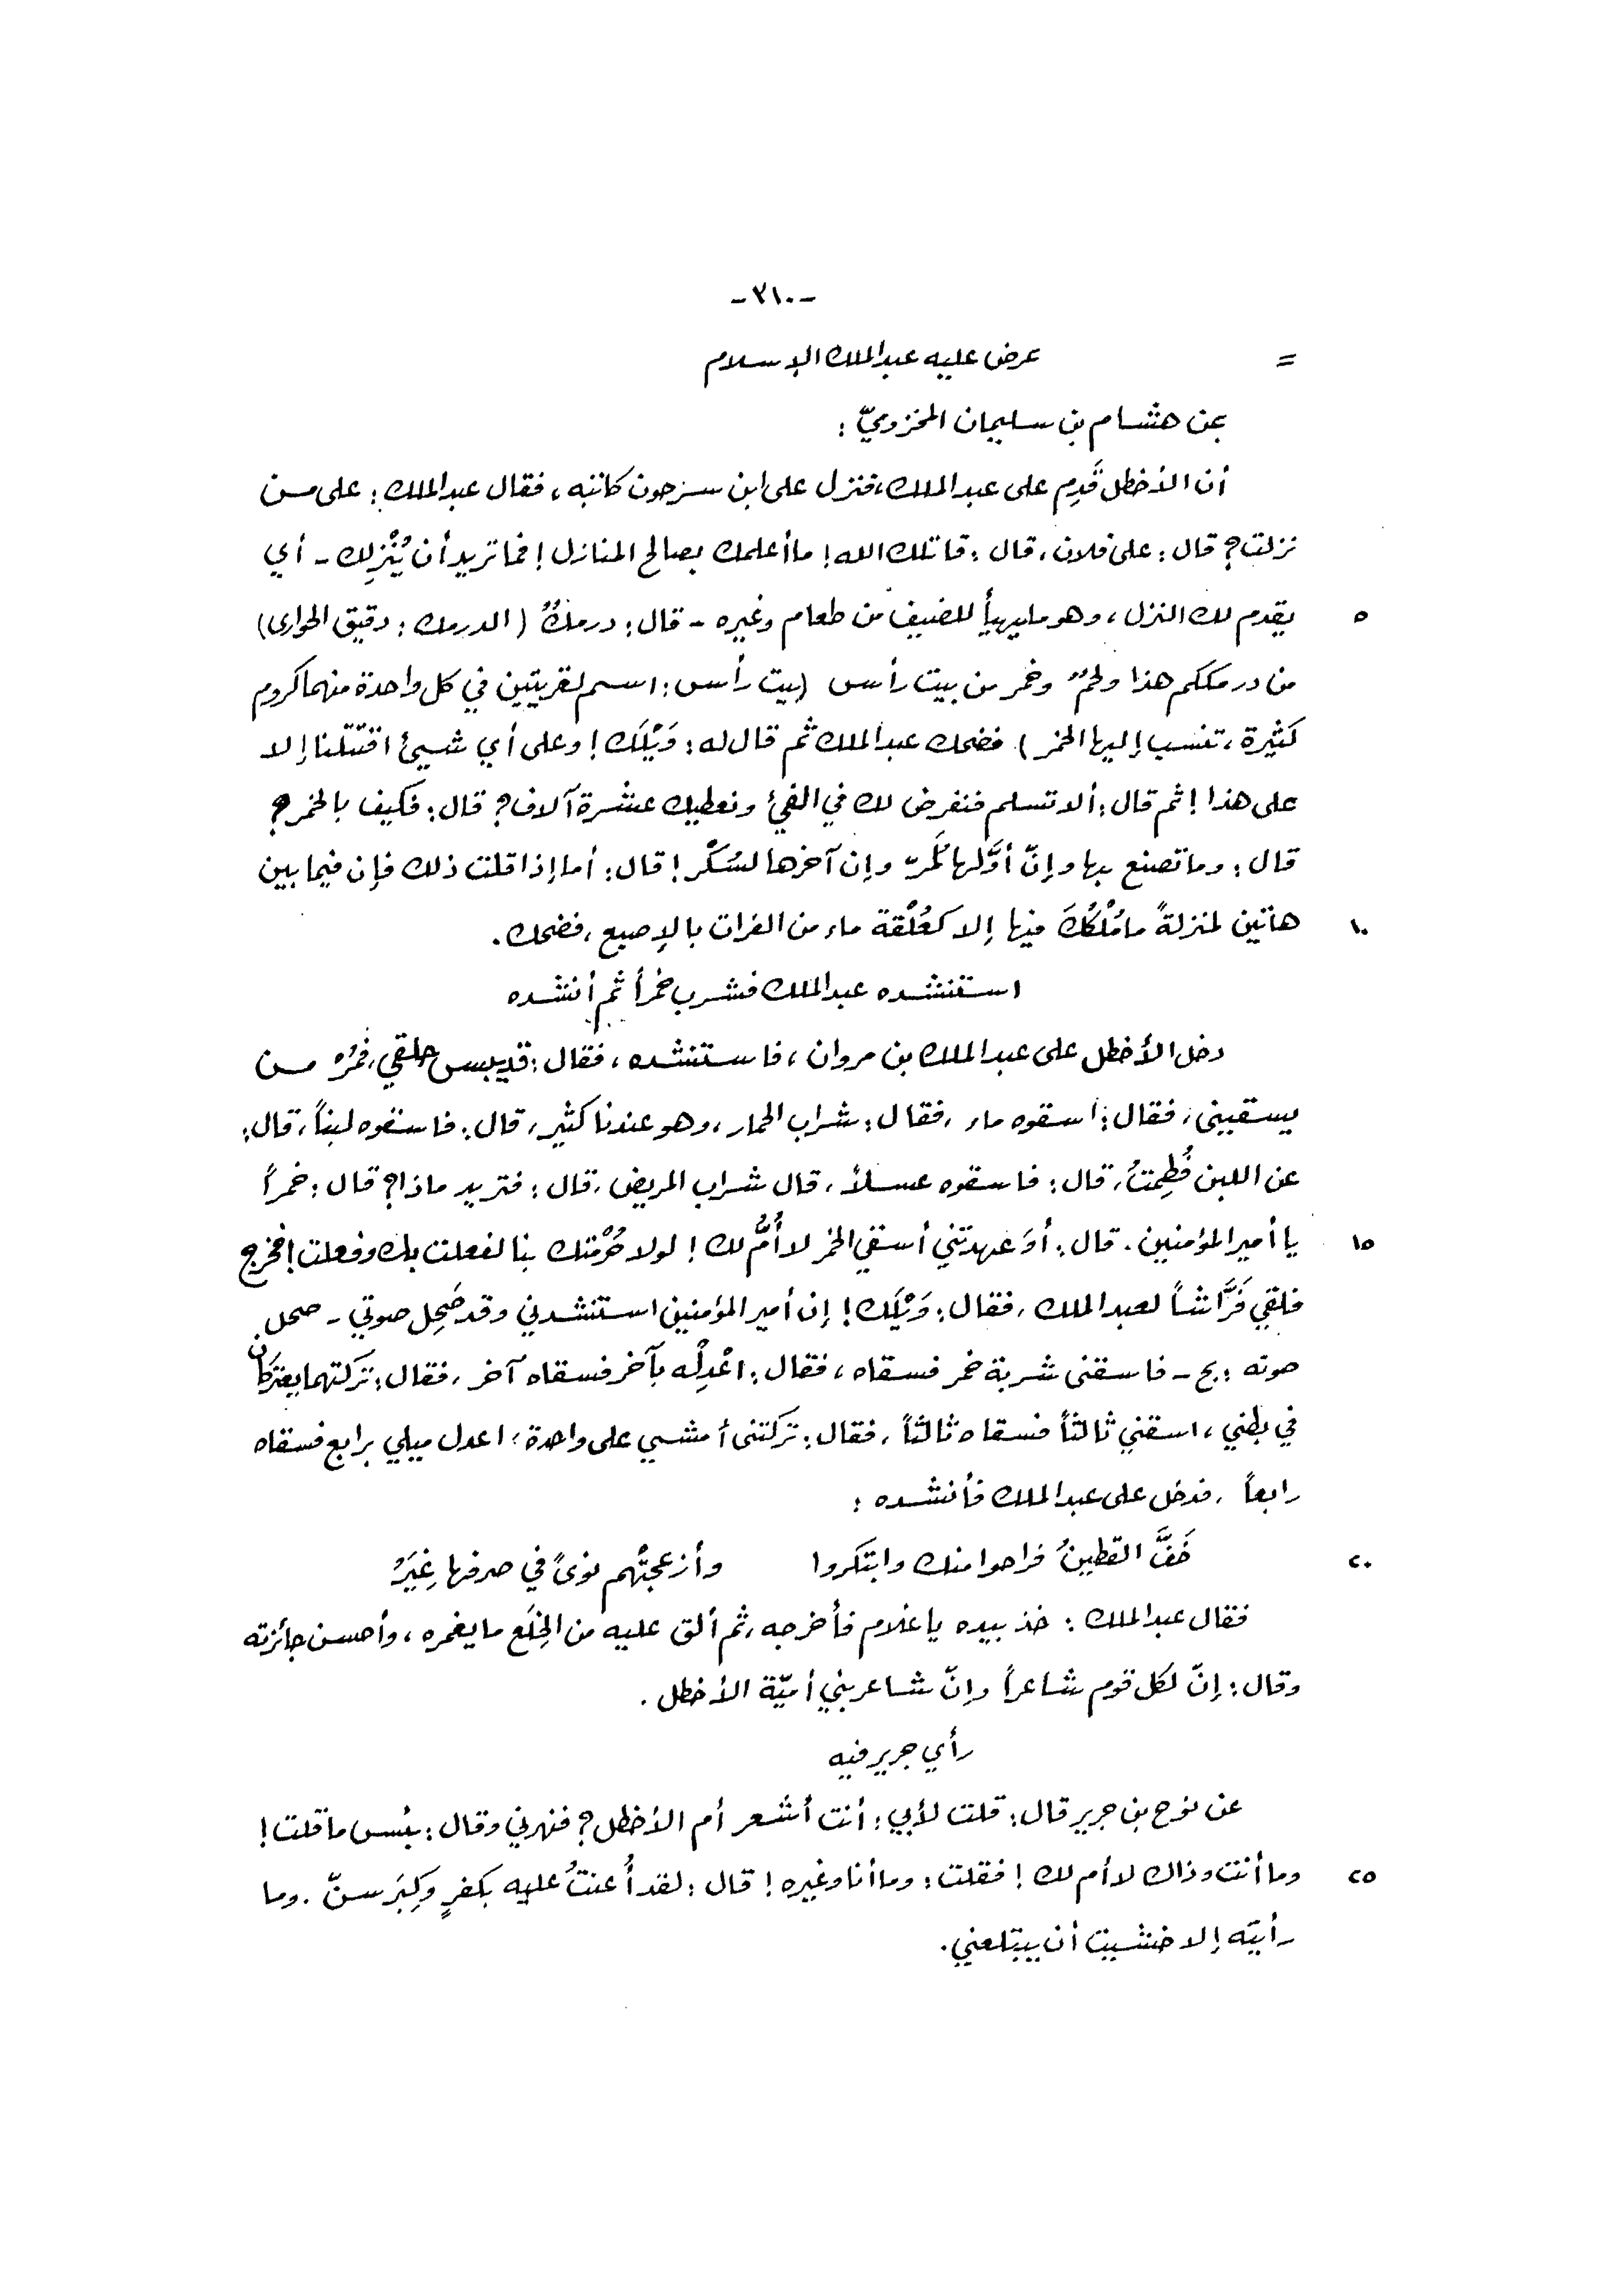 -٣١٠-
= عرض عليه عبد الملك الإسلام
عن هشام بن سليمان المخزوميّ :
أن الأخطل قَدِم على عبد الملك، فنزل على ابن سرحون كاتبه ، فقال عبد الملك : على من
نزلت؟ قال : على فلان ، قال : قاتلك الله ! ما أعلمك بصالح المنازل ! فما تريد أن يُنْزِلك - أي
٥ يقدم لك النزل ، وهو ما يهيأ للضيف من طعام وغيره - قال : درمكٌ ( الدرمك : دقيق الحوارى )
من درمككم هذا ولحمٌ وخمر من بيت رأس ( بيت رأس : اسم لقريتين في كل واحدة منهما كروم
كثيرة ، تنسب إليها الخمر ) فضحك عبد الملك ثم قال له : وَيْلَك ! وعلى أي شيئ اقتتلنا إلا
على هذا ! ثم قال : ألا تسلم فنفرض لك في الفيئ ونعطيك عشرة آلاف ؟ قال : فكيف بالخمر ؟
قال : وما تصنع بها وإنّ أوَّلها لَمُرّ وإن آخرها لسُكْر ! قال : أما إذا قلت ذلك فإن فيما بين
١٠ هاتين لمنزلةً ما مُلْكُكَ فيها إلا كعُلْقة ماء من الفرات بالإصبع ، فضحك .
استنشده عبد الملك فشرب خمراً ثم أنشده
دخل الأخطل على عبد الملك بن مروان ، فاستنشده ، فقال : قد يبس حلقي ، فمُرْ من
يسقيني ، فقال : اسقوه ماء ، فقال : شراب الحمار ، وهو عندنا كثير ، قال : فاسقوه لبناً ، قال :
عن اللبن فُطِمتُ ، قال : فاسقوه عسلاً ، قال شراب المريض ، قال : فتريد ماذا ؟ قال : خمراً
١٥ يا أمير المؤمنين . قال : أوَ عهدتني أسقي الخمر لا أُمَّ لك ! لولا حُرْمتك بنا لفعلت بك وفعلت ! فخرج
فلقي فَرَّاشاً لعبد الملك ، فقال : وَيْلَك ! إن أمير المؤمنين استنشدني وقد صَحِل صوتي - صحل
صوته : بح - فاسقني شربة خمر فسقاه ، فقال : اعْدِلْه بآخر فسقاه آخر ، فقال : تركتهما يعتركان
في بطني ، اسقني ثالثاً فسقاه ثالثاً ، فقال : تركتني أمشي على واحدة ؛ اعدل ميلي برابع فسقاه
رابعاً ، فدخل على عبد الملك فأنشده :
٢٠ خَفَّ القطينُ فراحوا منك وابتكروا وأزعجتْهم نوىً في صرفها غِيَرُ
فقال عبد الملك : خذ بيده يا غلام فأخرجه ، ثم ألق عليه من الخِلَع ما يغمره ، وأحسن جائزته
وقال : إنّ لكل قوم شاعراً وإنّ شاعر بني أميّة الأخطل .
رأي جرير فيه
عن نوح بن جرير قال : قلت لأبي : أنت أشعر أم الأخطل ؟ فنهرني وقال : بئس ما قلت !
٢٥ وما أنت وذاك لا أم لك ! فقلت : وما أنا وغيره ! قال : لقد أُعنتُ عليه بكفرٍ وكِبَر سنّ . وما
رأيته إلا خشيت أن يبتلعني .